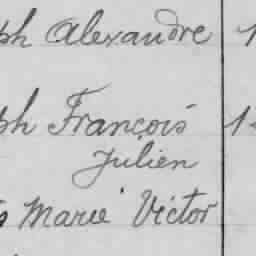 ph Alexandre 1
ph François 1
Julien
s Marie Victor